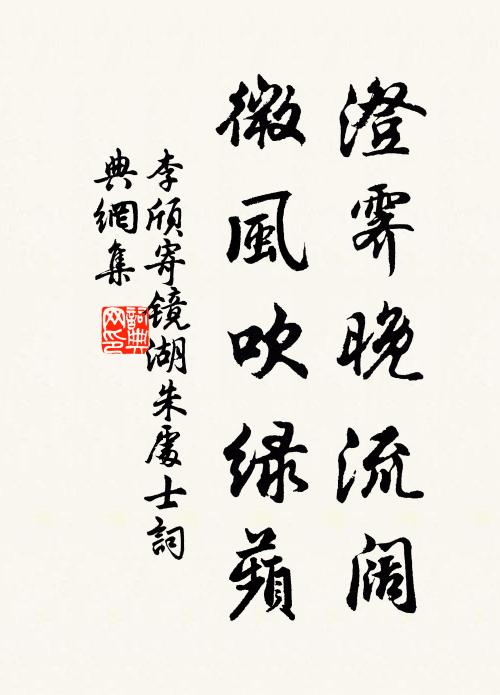 澄霁晚流阔
微風吹绿蘋
李颀寄镜湖朱處士詞
典網集
詞典网印